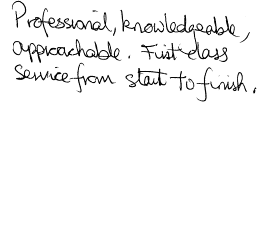 Professional, knowledgeable,
approachable. First class
service from start to finish.